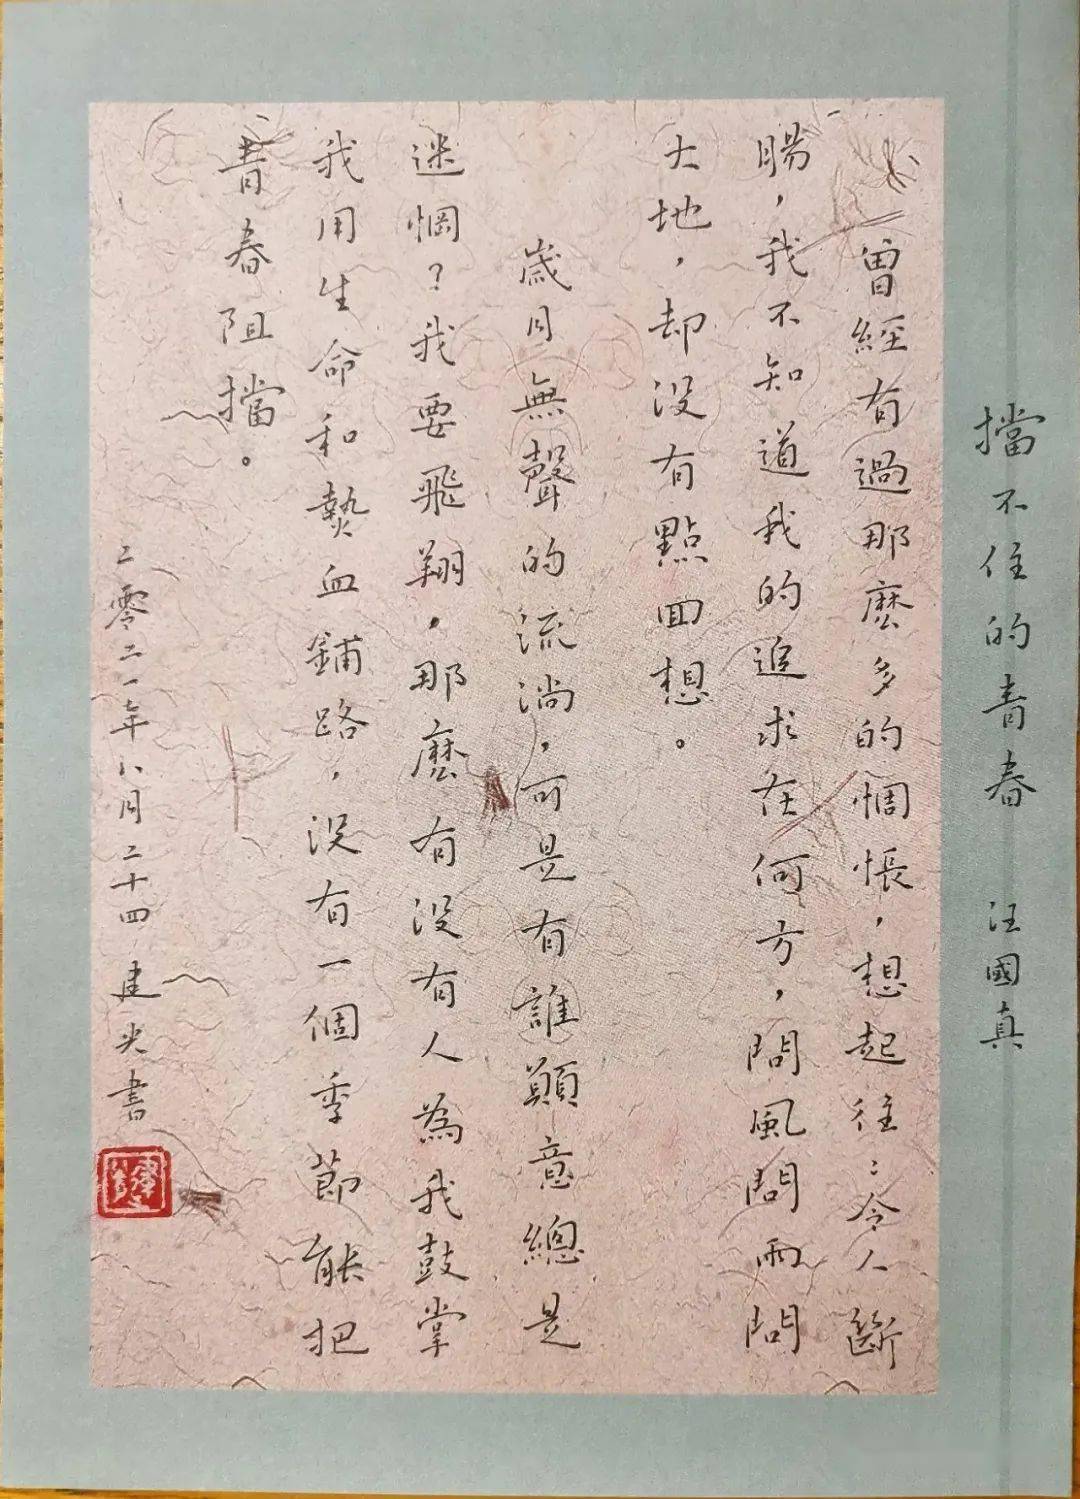 擋不住的青春 汪國真
曾經有過那麼多的惆悵，想起往〻令人斷
腸，我不知道我的追求在何方，問風問雨問
大地，却没有點回想。
歲月無聲的流淌，可是有誰願意總是
迷惘？我要飛翔，那麼有没有人為我鼓掌
我用生命和熱血鋪路，没有一個季節能把
青春阻擋。
二零二一年八月二十四建光書